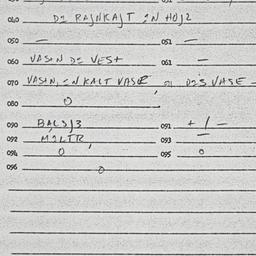 040 DE RAJNKAJT IN HOJZ
050 — 051 —
060 VASIN DE VEST 061 —
070 VASIN, IN KALT VASE, DIS VASE —
080 O
090 BALSJ3 091 + / —
092 MILTR, 093 —
094 O 095 O
096 O